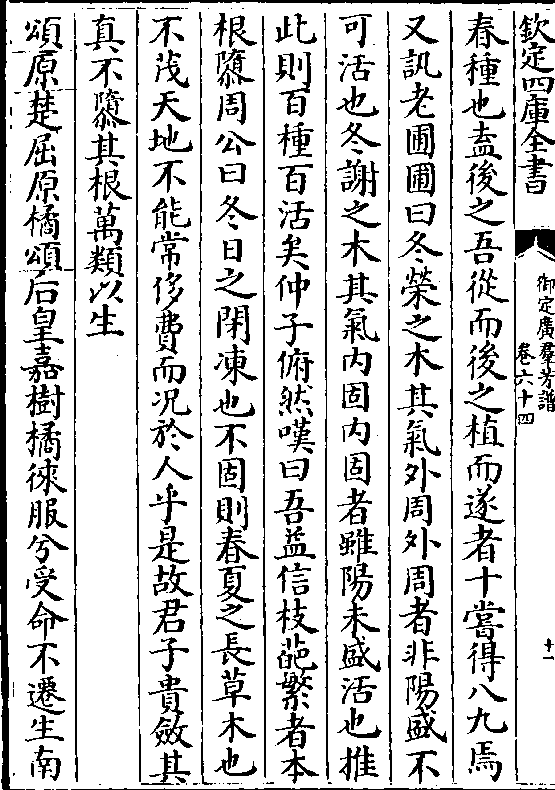 欽定四庫全書
御定廣羣芳譜
卷六十四
十一
春種也盍後之吾從而後之植而遂者十嘗得八九焉
又訊老圃圃曰冬榮之木其氣外周外周者非陽盛不
可活也冬謝之木其氣内固内固者雖陽未盛活也推
此則百種百活矣仲子俯然嘆曰吾益信枝葩繁者本
根隳周公曰冬日之閉凍也不固則春夏之長草木也
不茂天地不能常侈費而况於人乎是故君子貴斂其
真不隳其根萬類以生
頌原楚屈原橘頌后皇嘉樹橘徠服兮受命不遷生南